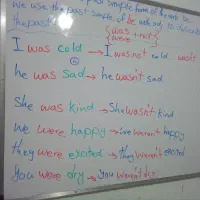 We use the past simple of be verb to describe
the past
{was + not
were
I was cold → I was not cold wasn't
he was sad → he wasn't sad
She was kind → She wasn't kind
we were happy → we weren't happy
they were excited → they weren't excited
you were dry → you weren't dry